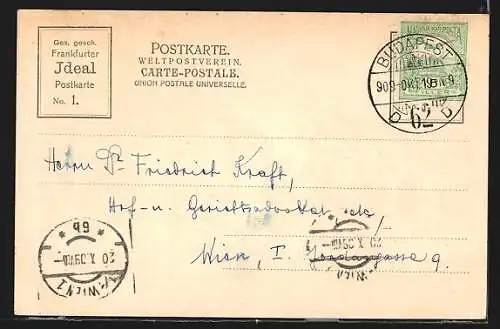 Ges. gesch.
Frankfurter
Jdeal
Postkarte
No. 1.
POSTKARTE.
WELTPOSTVEREIN.
CARTE-POSTALE.
UNION POSTALE UNIVERSELLE.
MAGYAR KIR. POSTA
BUDAPEST
909 OKT. 19
62
D D
Herrn Dr. Friedrich Kraft,
Hof- u. Gerichtsadvokat etc
Wien, I. Jordangasse 9.
6b
20 X.09
WIEN 1
20 X.09
WIEN